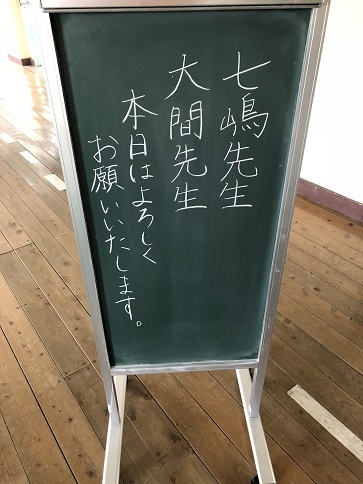 七嶋先生
大間先生
本日はよろしく
お願いいたします。